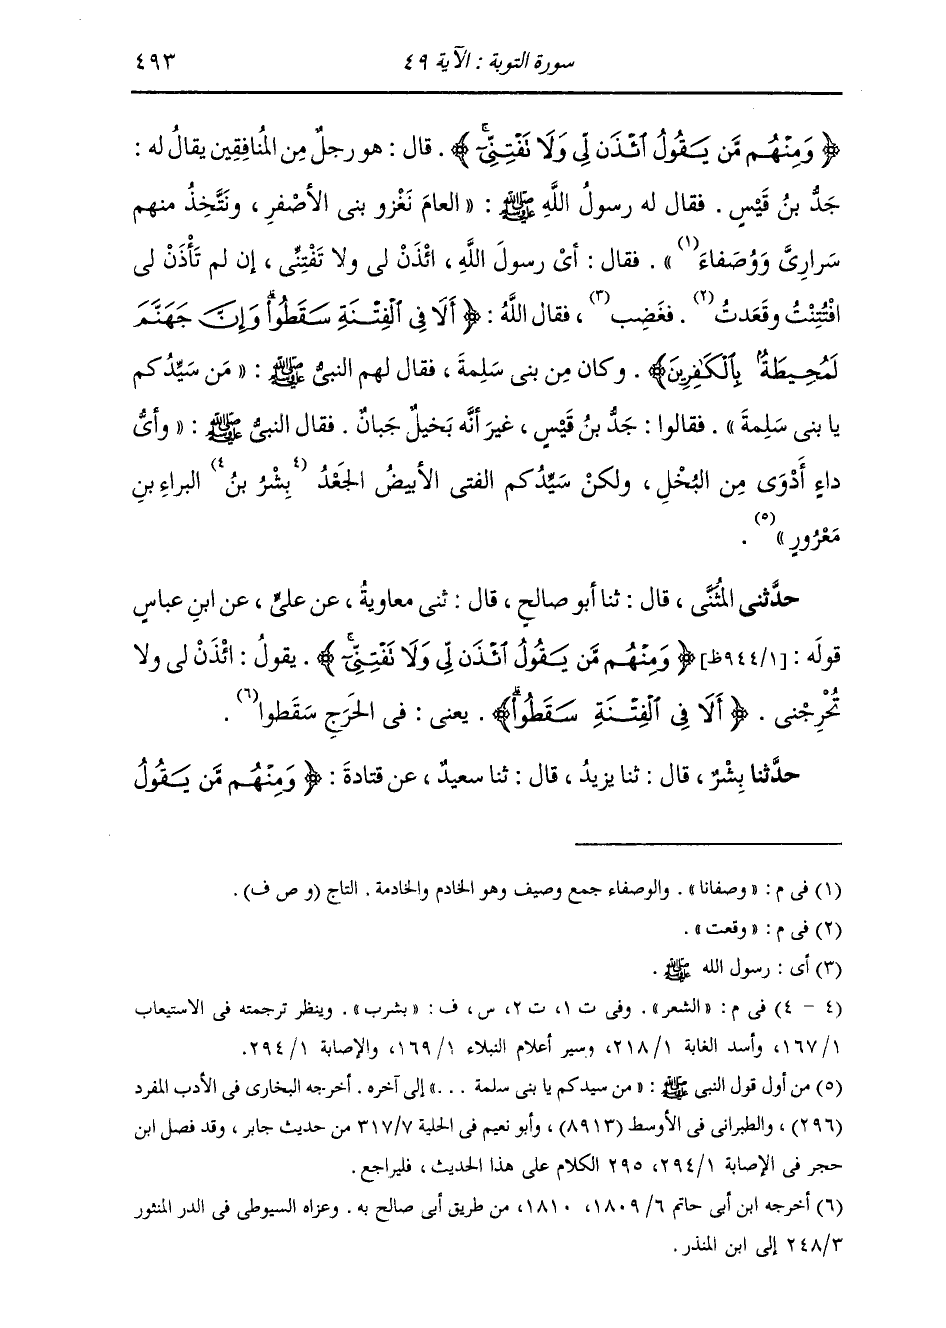 سورة التوبة : الآية ٤٩ ٤٩٣
﴿ وَمِنْهُم مَّن يَقُولُ ائْذَن لِّي وَلَا نَفْتِنِّيٓ ۚ ﴾ . قال : هو رجلٌ مِن المُنافِقِين يقالُ له :
جَدُّ بنُ قَيْسٍ . فقال له رسولُ اللَّهِ ﷺ : « العامَ نَغْزو بنى الأصْفرِ ، ونَتَّخِذُ منهم
سَرارِىَّ وَوُصَفاءَ(١) » . فقال : أىْ رسولَ اللَّهِ ، ائْذَنْ لى ولا تَفْتِنِّى ، إن لم تَأْذَنْ لى
افْتُتِنْتُ وقَعدتُ(٢) . فغَضِب(٣) ، فقال اللَّهُ : ﴿ أَلَا فِي الْفِتْنَةِ سَقَطُواْ ۗ وَإِنَّ جَهَنَّمَ
لَمُحِيطَةٌۢ بِالْكَافِرِينَ﴾ . وكان مِن بنى سَلِمةَ ، فقال لهم النبىُّ ﷺ : « مَن سَيِّدُكم
يا بنى سَلِمةَ » . فقالوا : جَدُّ بنُ قَيْسٍ ، غيرَ أنَّه بَخيلٌ جَبانٌ . فقال النبىُّ ﷺ : « وأىُّ
داءٍ أَدْوَى مِن البُخْلِ ، ولكنْ سَيِّدُكم الفتى الأبيضُ الجَعْدُ (٤ بِشْرُ بنُ ٤) البراءِ بنِ
مَعْرُورٍ »(٥) .
حدَّثنى المُثَنَّى ، قال : ثنا أبو صالحٍ ، قال : ثنى معاويةُ ، عن علىٍّ ، عن ابنِ عباسٍ
قولَه : [٩٤٤/١ظ] ﴿ وَمِنْهُم مَّن يَقُولُ ائْذَن لِّي وَلَا نَفْتِنِّيٓ ۚ ﴾ . يقولُ : ائْذَنْ لى ولا
تُحْرِجْنى . ﴿ أَلَا فِي الْفِتْنَةِ سَقَطُواْ ۗ﴾ . يعنى : فى الحَرَجِ سَقَطوا(٦) .
حدَّثنا بِشْرٌ ، قال : ثنا يزيدُ ، قال : ثنا سعيدٌ ، عن قتادةَ : ﴿ وَمِنْهُم مَّن يَقُولُ
(١) فى م : « وصفانا » . والوصفاء جمع وصيف وهو الخادم والخادمة . التاج (و ص ف) .
(٢) فى م : « وقعت » .
(٣) أى : رسول الله ﷺ .
(٤ - ٤) فى م : « الشعر » . وفى ت ١، ت ٢، س ، ف : « بشرب » . وينظر ترجمته فى الاستيعاب
١/ ١٦٧، وأسد الغابة ١/ ٢١٨، وسير أعلام النبلاء ١/ ١٦٩، والإصابة ١/ ٢٩٤.
(٥) من أول قول النبى ﷺ : « من سيدكم يا بنى سلمة ...» إلى آخره . أخرجه البخارى فى الأدب المفرد
(٢٩٦) ، والطبرانى فى الأوسط (٨٩١٣) ، وأبو نعيم فى الحلية ٣١٧/٧ من حديث جابر ، وقد فصل ابن
حجر فى الإصابة ١/ ٢٩٤، ٢٩٥ الكلام على هذا الحديث ، فليراجع .
(٦) أخرجه ابن أبى حاتم ٦/ ١٨٠٩، ١٨١٠، من طريق أبى صالح به . وعزاه السيوطى فى الدر المنثور
٢٤٨/٣ إلى ابن المنذر .